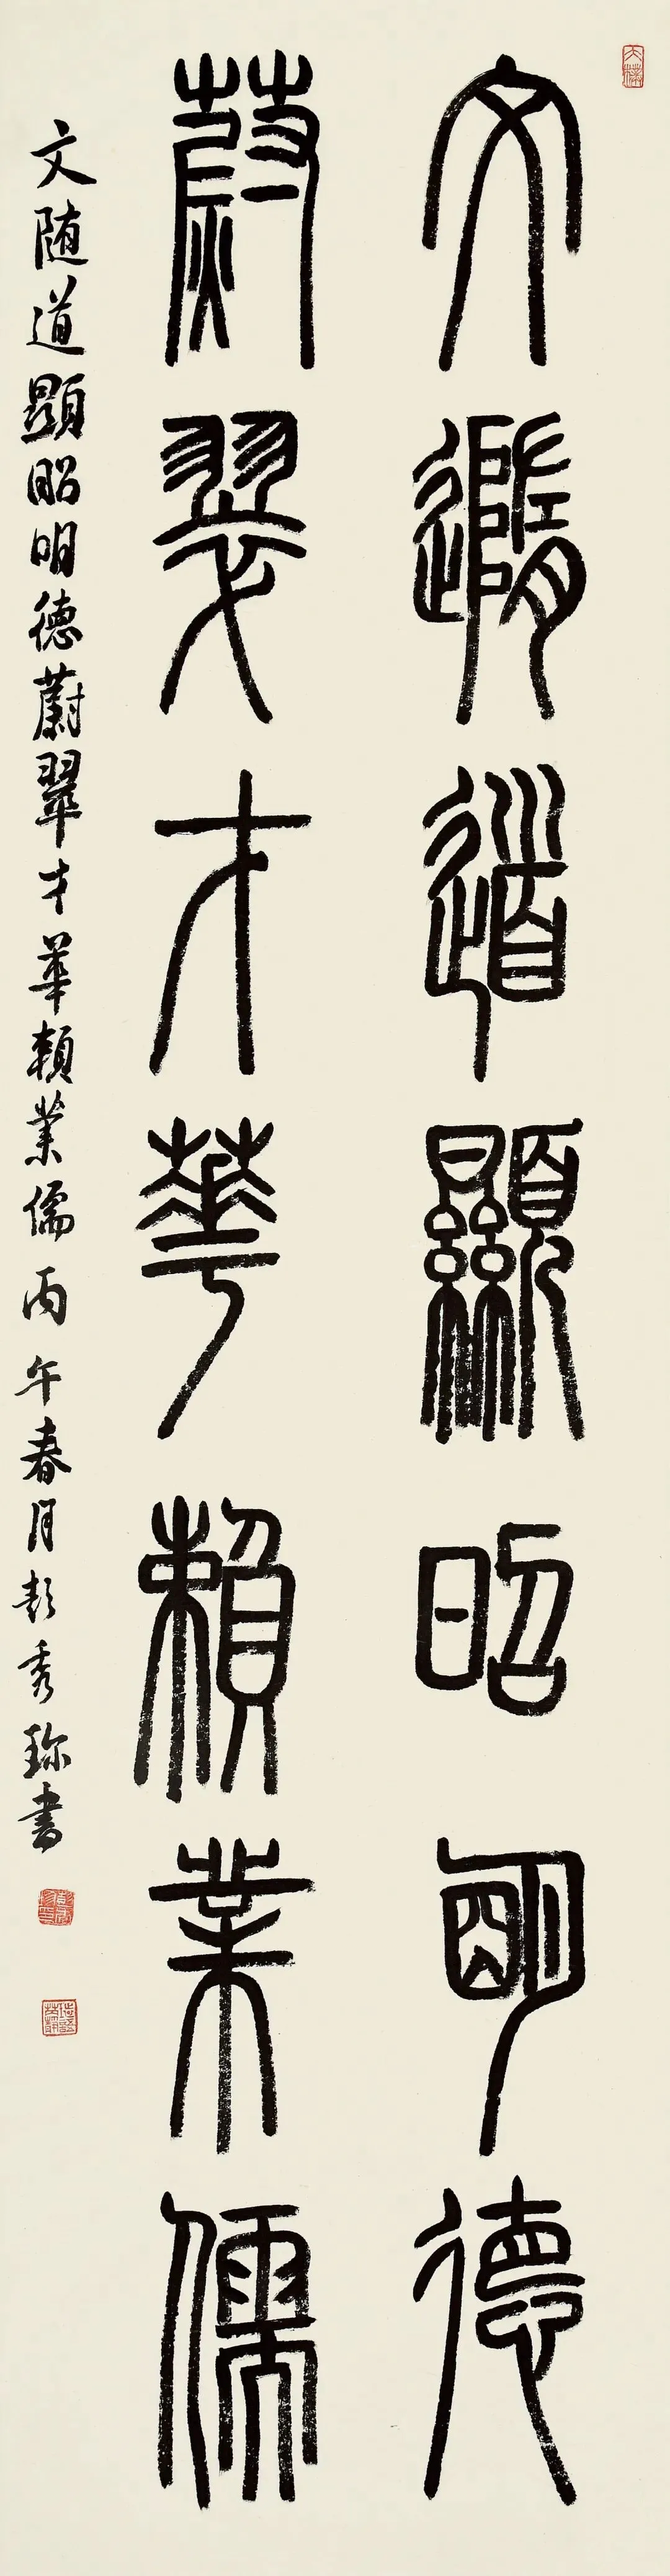 文隨道顯昭明德
蔚翠才華賴業儒
文随道顯昭明德蔚翠才華賴業儒丙午春月彭秀珎書